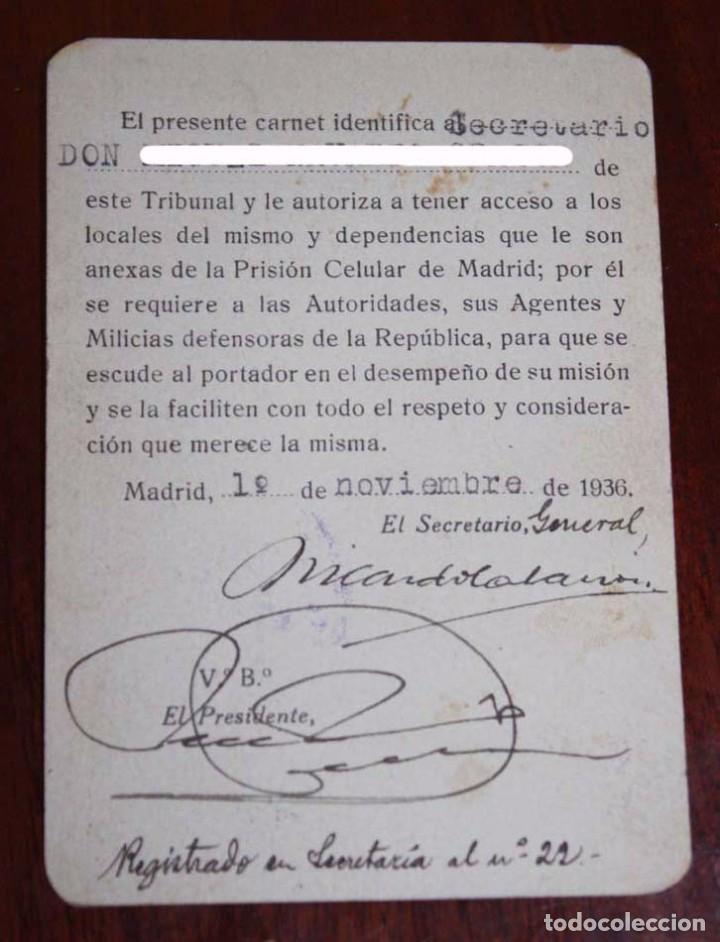 El presente carnet identifica al Secretario
DON
de
este Tribunal y le autoriza a tener acceso a los
locales del mismo y dependencias que le son
anexas de la Prisión Celular de Madrid; por él
se requiere a las Autoridades, sus Agentes y
Milicias defensoras de la República, para que se
escude al portador en el desempeño de su misión
y se la faciliten con todo el respeto y considera-
ción que merece la misma.
Madrid, 1º de noviembre de 1936.
El Secretario, General,
V.º B.º
El Presidente,
Registrado en Secretaría al nº 22.-
todocoleccion